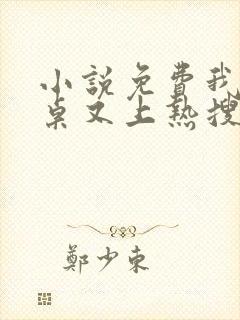 小說免費我
桌又上熱搜
鄭少東